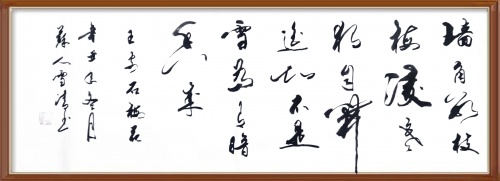 墙角数枝
梅凌寒
独自开
遥知不是
雪為有暗
香来
王安石梅花
辛丑年冬月